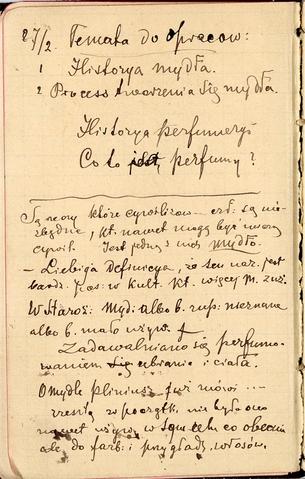 27/2. Temata do opracow:
1 Historya mydła.
2 Process tworzenia się mydła.
Historya perfumeryi
Co to jest perfumy?
Są rzeczy które cywilizow— są nie-
zbędne, kt. nawet mogą być miarą
cywil. Jest jedną z nich mydło.
— Liebiga Definicya, że ten nar. jest
bardz. w kult. kt. więcej m. zuż.
W staroż: mydł albo b. nieznane
albo b. mało używ.
Zadawalniano się perfumo-
waniem się ubrania i ciała.
O mydle Pliniusz już mówi ...
zresztą z początk. nie było ono
nawet używ. w tym celu co obecnie
ale do farb. i przygład. włosów.